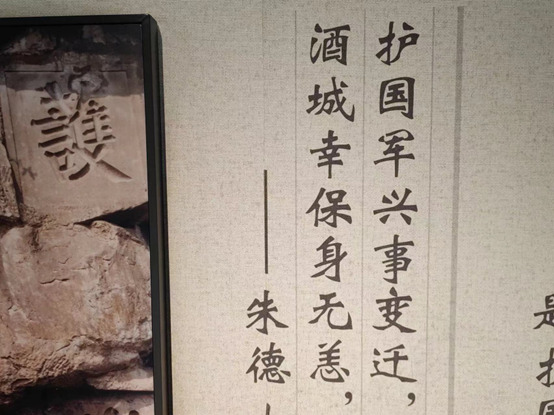 是护国
护国军兴事变迁，
酒城幸保身无恙，
——朱德
護